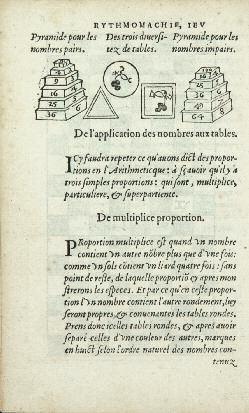 RYTHMOMACHIE, IEV
Pyramide pour les nombres pairs.
Des trois diuersitez de tables.
Pyramide pour les nombres impairs.
4
9
16
25
36
16
25
36
49
64
De l'application des nombres aux tables.
ICy faudra repeter ce qu'auons dict des propor-
tions en l'Arithmeticque: à sçauoir qu'il y a
trois simples proportions: qui sont, multiplice,
particuliere, & superpartiente.
De multiplice proportion.
PRoportion multiplice est quand vn nombre
contient vn autre nõbre plus que d'vne fois:
comme vn sols cõtient vn liard quatre fois: sans
point de reste, de laquelle proportiõ cy apres mon
strerons les especes. Et par ce qu'en ceste propor-
tion l'vn nombre contient l'autre rondement, luy
seront propres, & conuenantes les tables rondes.
Prens donc icelles tables rondes, & apres auoir
separé celles d'vne couleur des autres, marques
en huict selon l'ordre naturel des nombres con-
tenuz